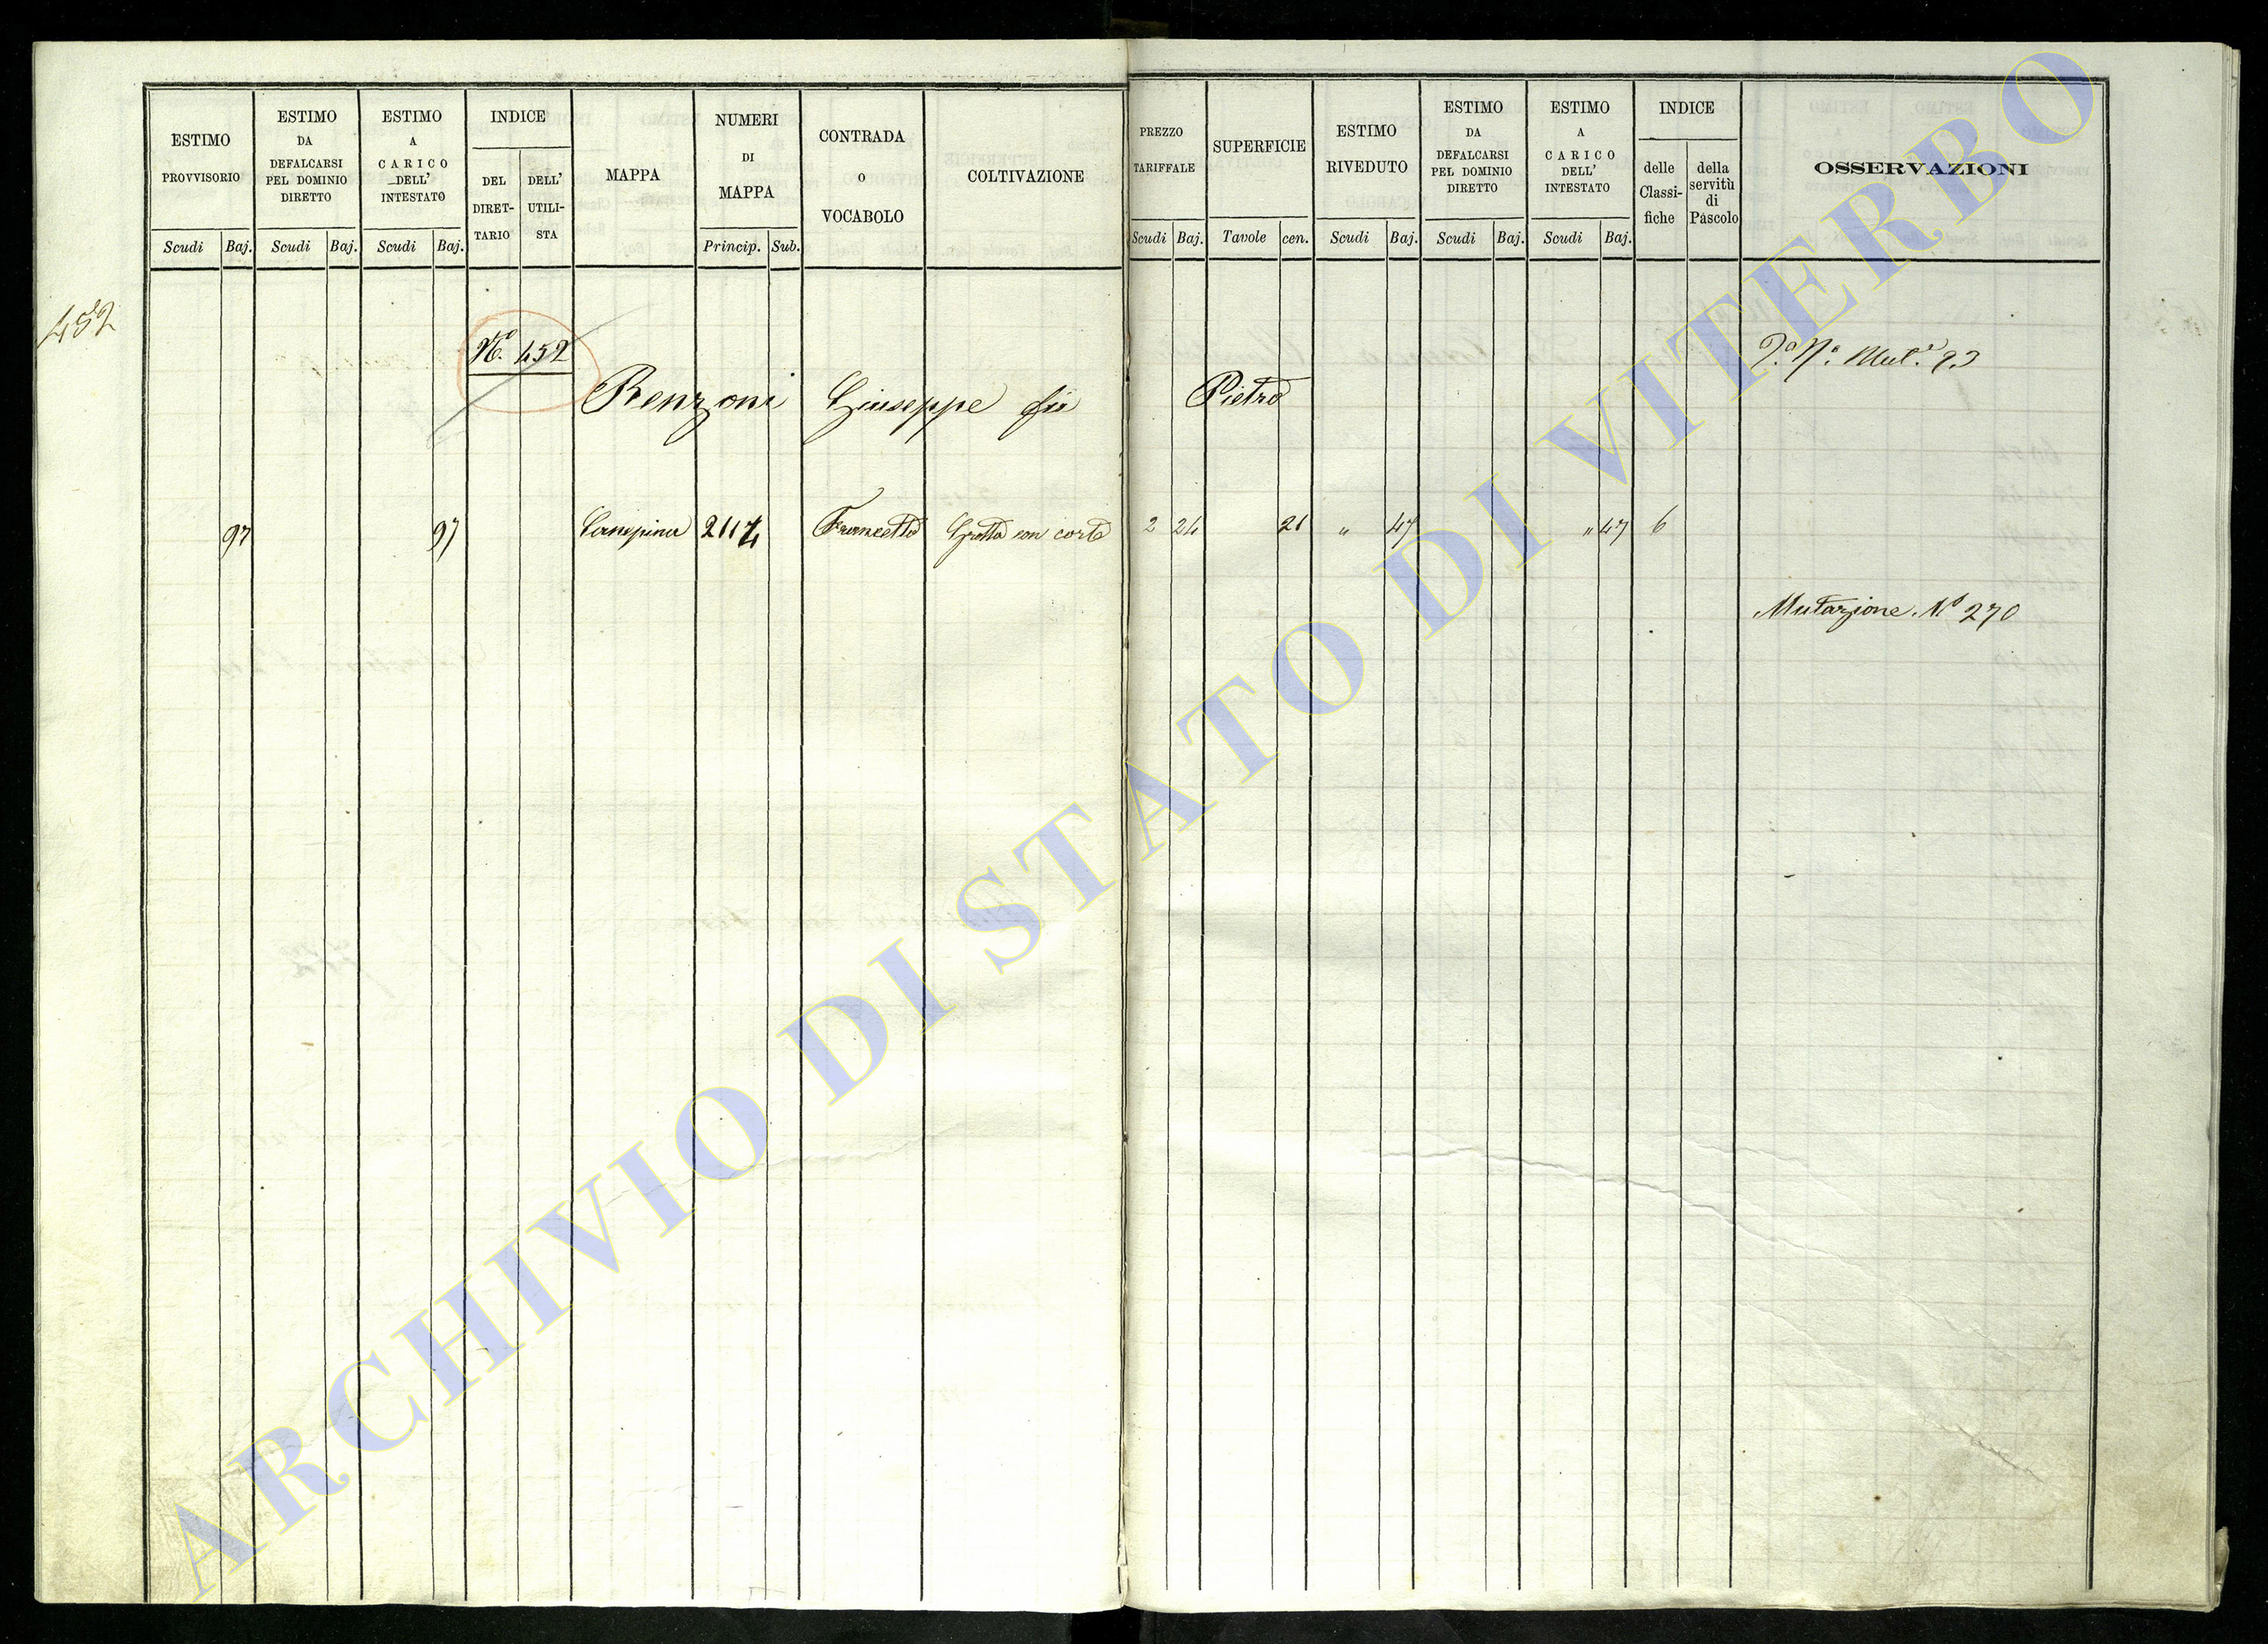 ESTIMO PROVVISORIO
Scudi Baj.
ESTIMO DA DEFALCARSI PEL DOMINIO DIRETTO
Scudi Baj.
ESTIMO A CARICO DELL' INTESTATO
Scudi Baj.
INDICE
DEL DIRET-TARIO
DELL' UTILI-STA
MAPPA
NUMERI DI MAPPA
Princip. Sub.
CONTRADA O VOCABOLO
COLTIVAZIONE
PREZZO TARIFFALE
Scudi Baj.
SUPERFICIE
Tavole cen.
ESTIMO RIVEDUTO
Scudi Baj.
ESTIMO DA DEFALCARSI PEL DOMINIO DIRETTO
Scudi Baj.
ESTIMO A CARICO DELL' INTESTATO
Scudi Baj.
INDICE
delle Classi-fiche
della servitù di Pascolo
OSSERVAZIONI
452
No. 452
Mut.e 93
Benzoni Giuseppe fu Pietro
97 97 Canepina 2117 Francetta Grotta con corte 2 24 21 " 47 " 47 6
Mutazione No 270
ARCHIVIO DI STATO DI VITERBO